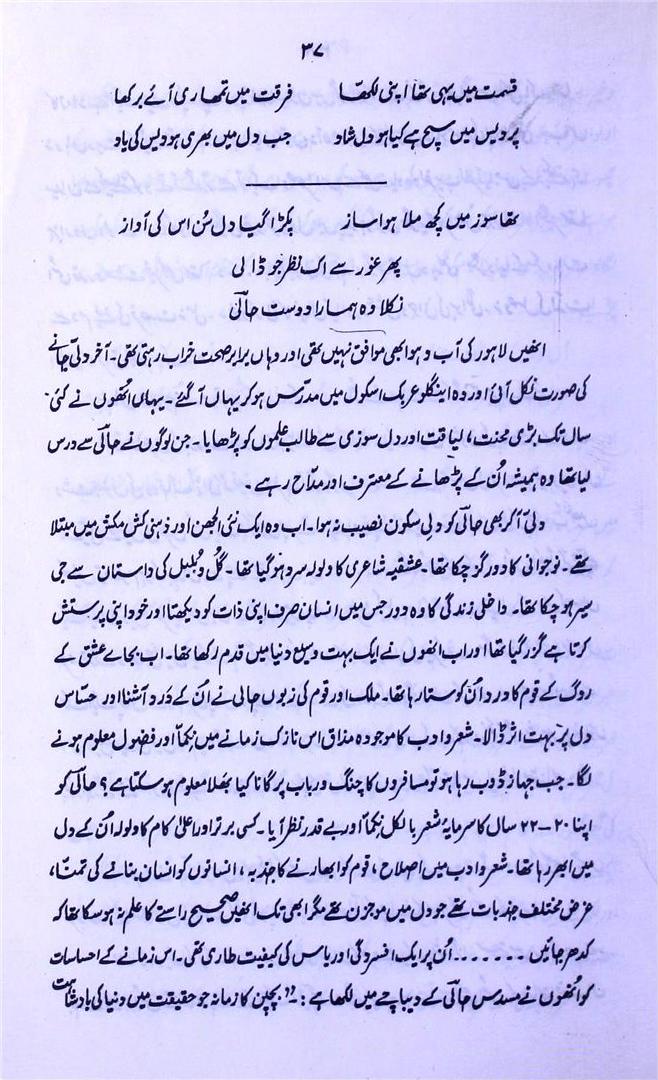 ۳۷
قسمت میں یہی تھا اپنی لکھا فرقت میں تمھاری آئے برکھا
پردیس میں سچ ہے کیا ہو دل شاد جب دل میں بھری ہو دیس کی یاد
تھا سوز میں کچھ ملا ہوا ساز پکڑا گیا دل سُن اس کی آواز
پھر غور سے اک نظر جو ڈالی
نکلا وہ ہمارا دوست حالیؔ
انھیں لاہور کی آب و ہوا بھی موافق نہیں تھی اور وہاں برابر صحت خراب رہتی تھی۔ آخر دلّی جانے
کی صورت نکل آئی اور وہ اینگلو عربک اسکول میں مدرّس ہو کر یہاں آگئے۔ یہاں انھوں نے کئی
سال تک بڑی محنت، لیاقت اور دل سوزی سے طالب علموں کو پڑھایا۔ جن لوگوں نے حالیؔ سے درس
لیا تھا وہ ہمیشہ اُن کے پڑھانے کے معترف اور مدّاح رہے۔
دلّی آکر بھی حالیؔ کو دلی سکون نصیب نہ ہوا۔ اب وہ ایک نئی الجھن اور ذہنی کش مکش میں مبتلا
تھے۔ نوجوانی کا دور گزر چکا تھا۔ عشقیہ شاعری کا ولولہ سرد ہو گیا تھا۔ گُل و بُلبل کی داستان سے جی
سیر ہو چکا تھا۔ داخلی زندگی کا وہ دور جس میں انسان صرف اپنی ذات کو دیکھتا اور خود اپنی پرستش
کرتا ہے گزر گیا تھا اور اب انھوں نے ایک بہت وسیع دنیا میں قدم رکھا تھا۔ اب بجائے عشق کے
روگ کے قوم کا درد اُن کو ستا رہا تھا۔ ملک اور قوم کی زبوں حالی نے اُن کے درد آشنا اور حسّاس
دل پر بہت اثر ڈالا۔ شعر و ادب کا موجودہ مذاق اس نازک زمانے میں نکمّا اور فضول معلوم ہونے
لگا۔ جب جہاز ڈوب رہا ہو تو مسافروں کا چنگ و رباب پر گانا کیا بھلا معلوم ہو سکتا ہے؟ حالیؔ کو
اپنا ۲۰–۲۲ سال کا سرمایۂ شعر بالکل نکمّا اور بے قدر نظر آیا۔ کسی برتر اور اعلیٰ کام کا ولولہ اُن کے دل
میں ابھر رہا تھا۔ شعر و ادب میں اصلاح، قوم کو ابھارنے کا جذبہ، انسانوں کو انسان بنانے کی تمنّا،
غرض مختلف جذبات تھے جو دل میں موجزن تھے مگر ابھی تک انھیں صحیح راستے کا علم نہ ہو سکا تھا کہ
کدھر جائیں ....... اُن پر ایک افسردگی اور یاس کی کیفیت طاری تھی۔ اس زمانے کے احساسات
کو انھوں نے مسدس حالیؔ کے دیباچے میں لکھا ہے:۔ ”بچپن کا زمانہ جو حقیقت میں دنیا کی بادشاہت